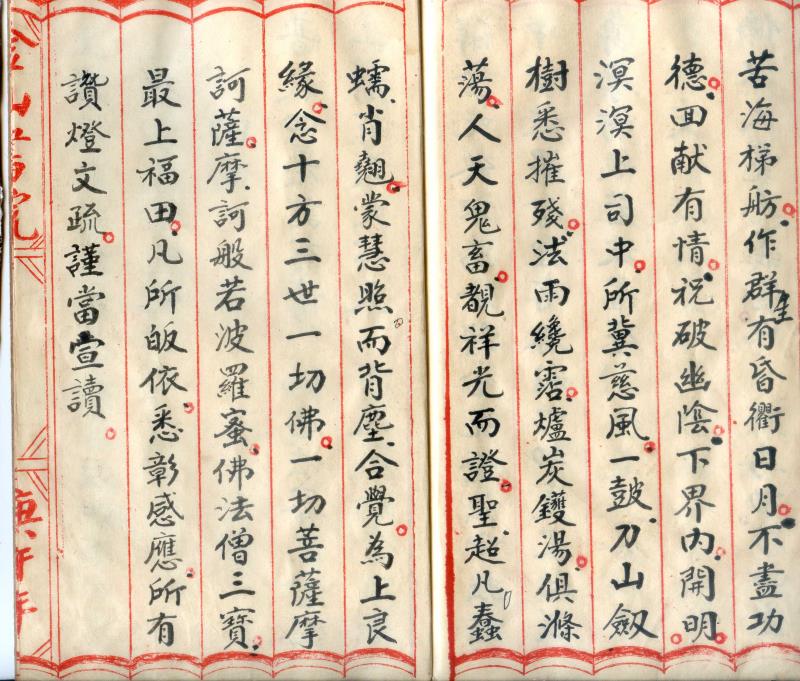 苦海梯舫作群生有昏衢日月不盡功
德回献有情祝破幽陰下界內開明
溟溟上司中所冀慈風一鼓刀山劔
樹悉摧殘法雨纔霑爐炭鑊湯俱滌
蕩人天鬼畜覩祥光而證聖超凡蠢
蠕肖翹蒙慧照而背塵合覺為上良
緣念十方三世一切佛一切菩薩摩
訶薩摩訶般若波羅蜜佛法僧三寶
最上福田凡所皈依悉彰感應所有
讚燈文疏謹當宣讀
庚午年